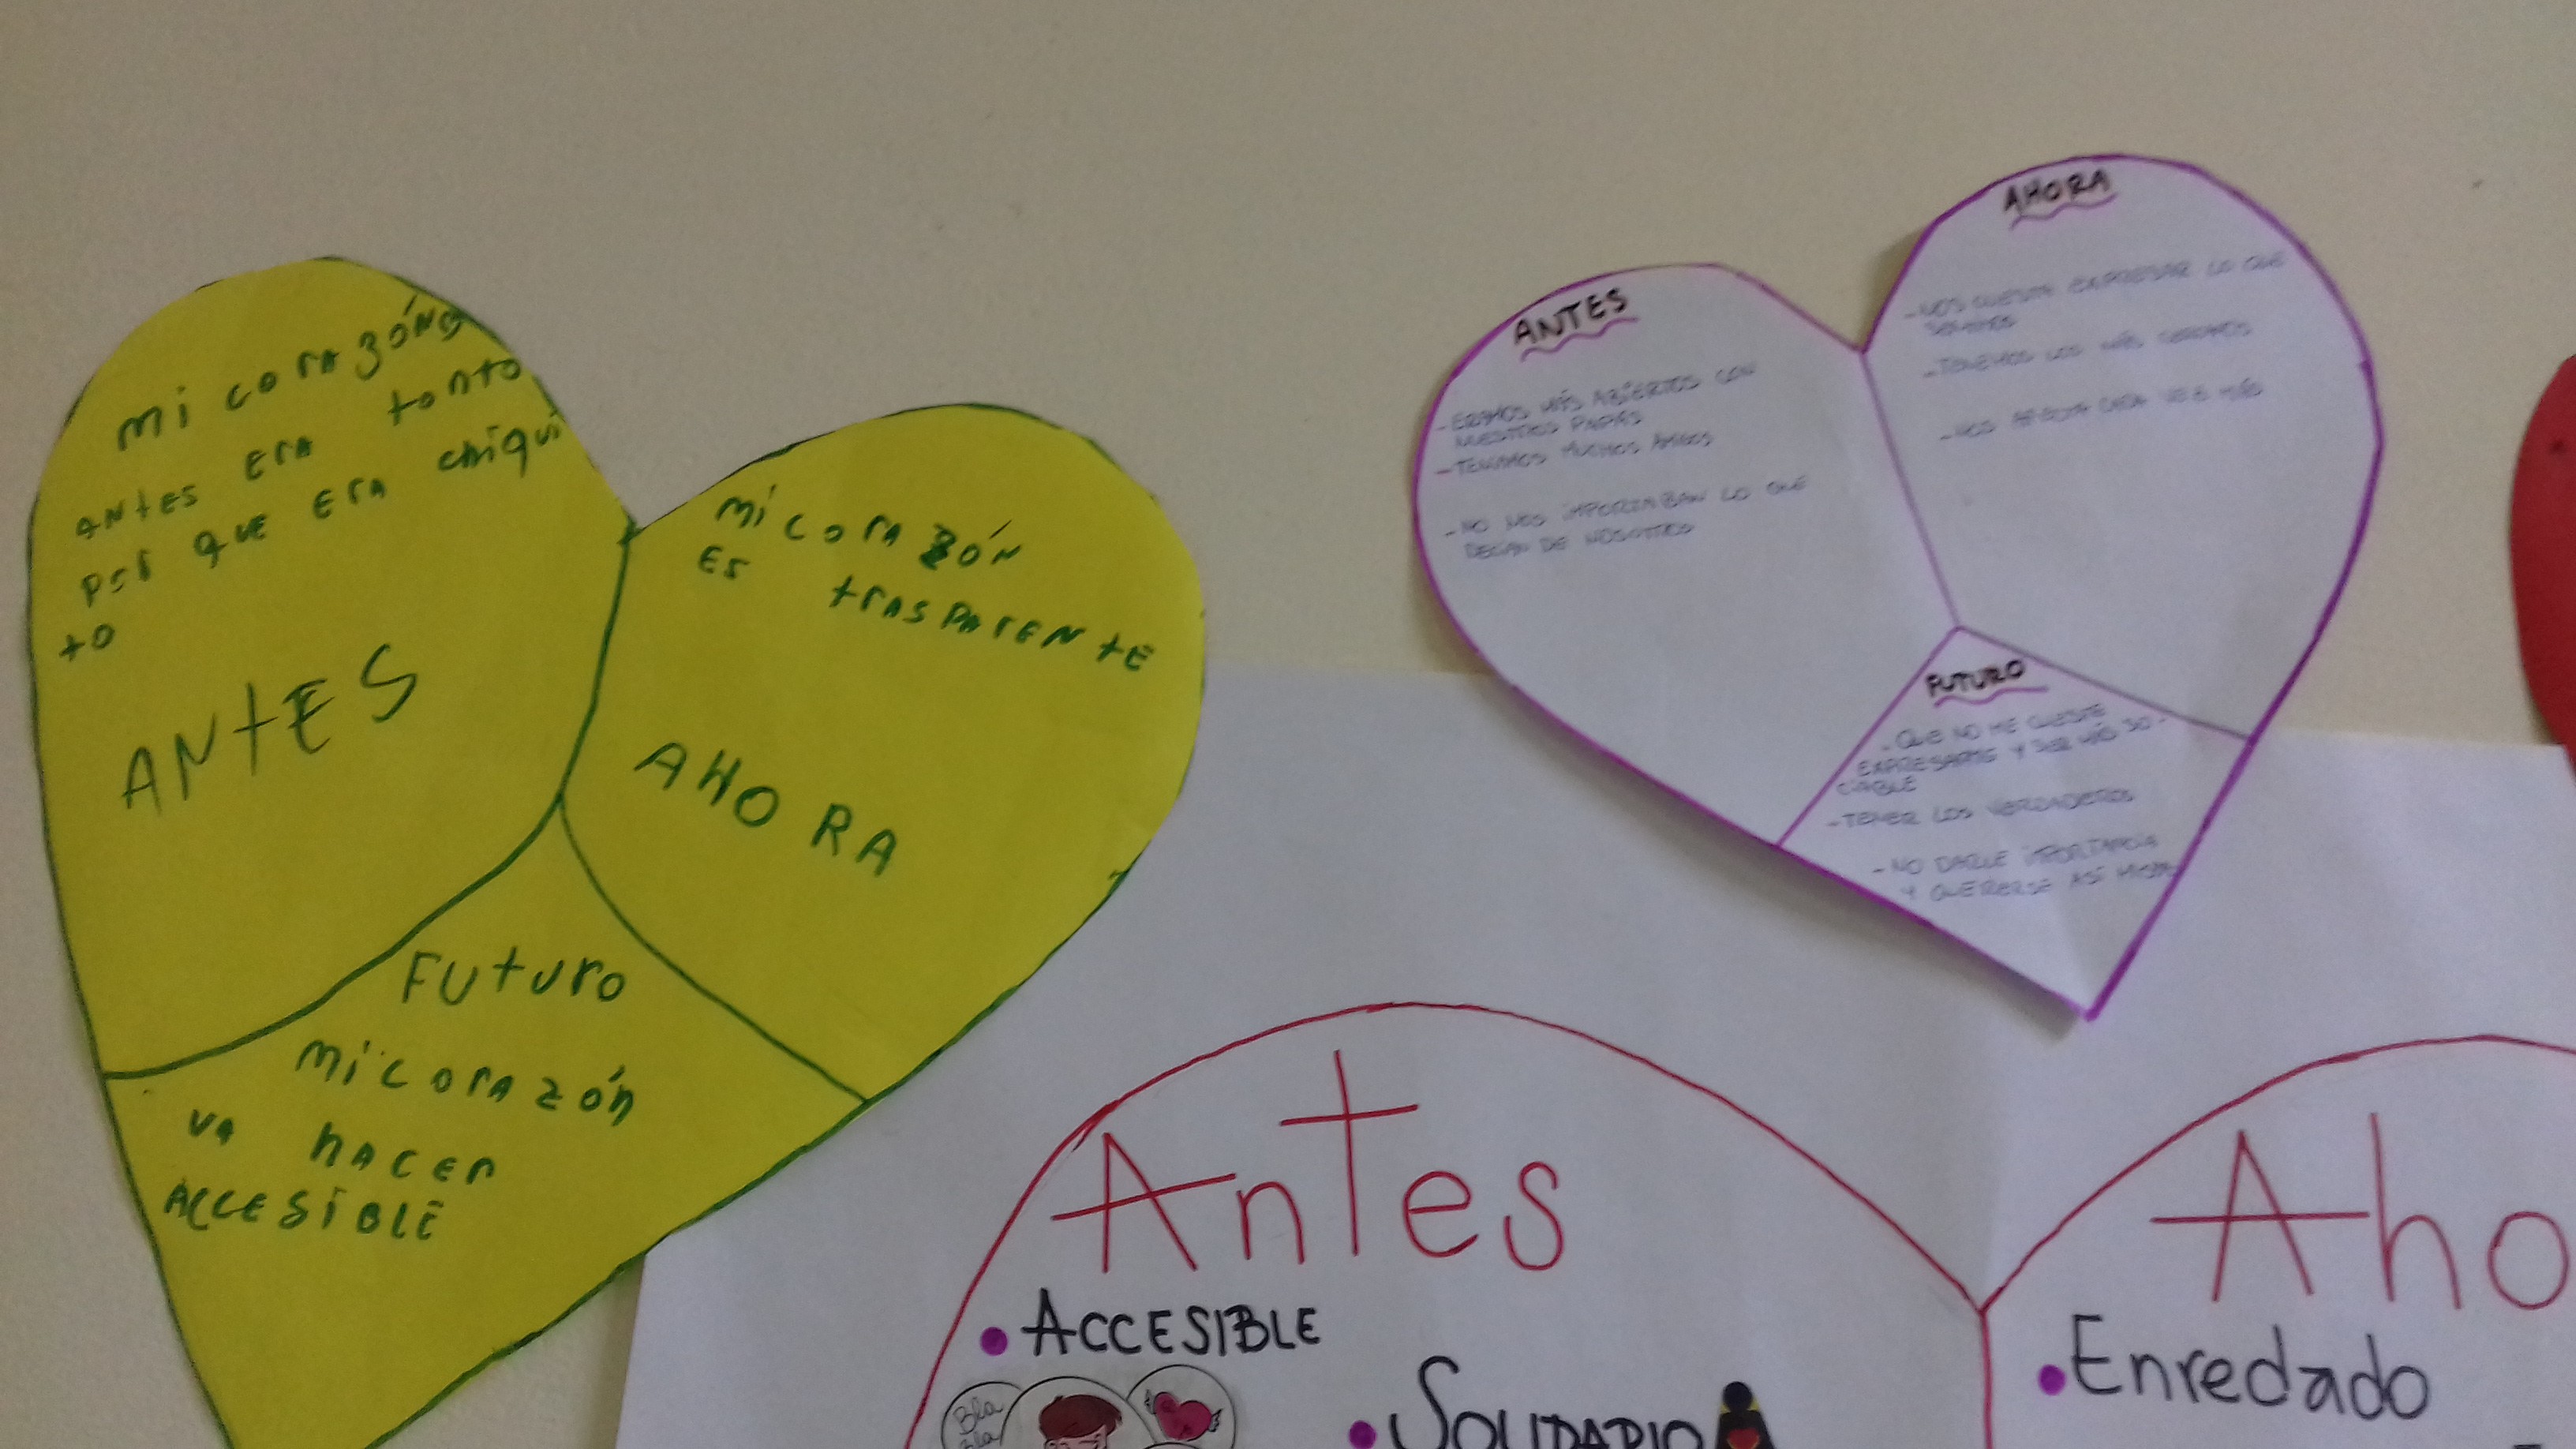 mi corazón
antes era tonto
por que era chiqui
to
ANtES
mi corazón
es trasparente
AHORA
Futuro
mi corazón
va hacer
ACCESIBLE
ANTES
- ERAMOS MÁS ABIERTOS CON
NUESTROS PAPÁS
- TENIAMOS MUCHOS AMIGOS
- NO NOS IMPORTABAN LO QUE
DECIAN DE NOSOTROS
AHORA
- NOS CUESTA EXPRESAR LO QUE
SENTIMOS
- TENEMOS LOS MÁS
- NOS AFECTA CADA VEZ MÁS
FUTURO
- QUE NO ME CUESTE
EXPRESARME Y SER MÁS SO-
CIABLE
- TENER LOS VERDADEROS
- NO DARLE IMPORTANCIA
Y QUERERSE ASÍ MISMO
Antes
• ACCESIBLE
Bla
bla
• SOLIDARIO
Aho
• Enredado